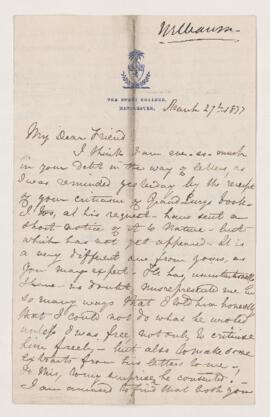 Williamson
THE OWENS COLLEGE,
MANCHESTER.
March 27th 1877
My Dear Friend
I think I am ever so much
in your debt in the way of letters, as
I was reminded yesterday by the receipt
of your criticism of Grand'Eury's book.
I too, at his request, have sent a
short notice of it to Nature - but
which has not yet appeared. It is
a very different one from yours, as
you may expect. He has, unintentionally
I have no doubt, misrepresented me in
so many ways that I told him honestly
that I could not do what he wanted
unless I was free not only to criticise
him freely - but also to make some
extracts from his letters to me.
To this, to my surprise, he consented!
I am amused to find that both you